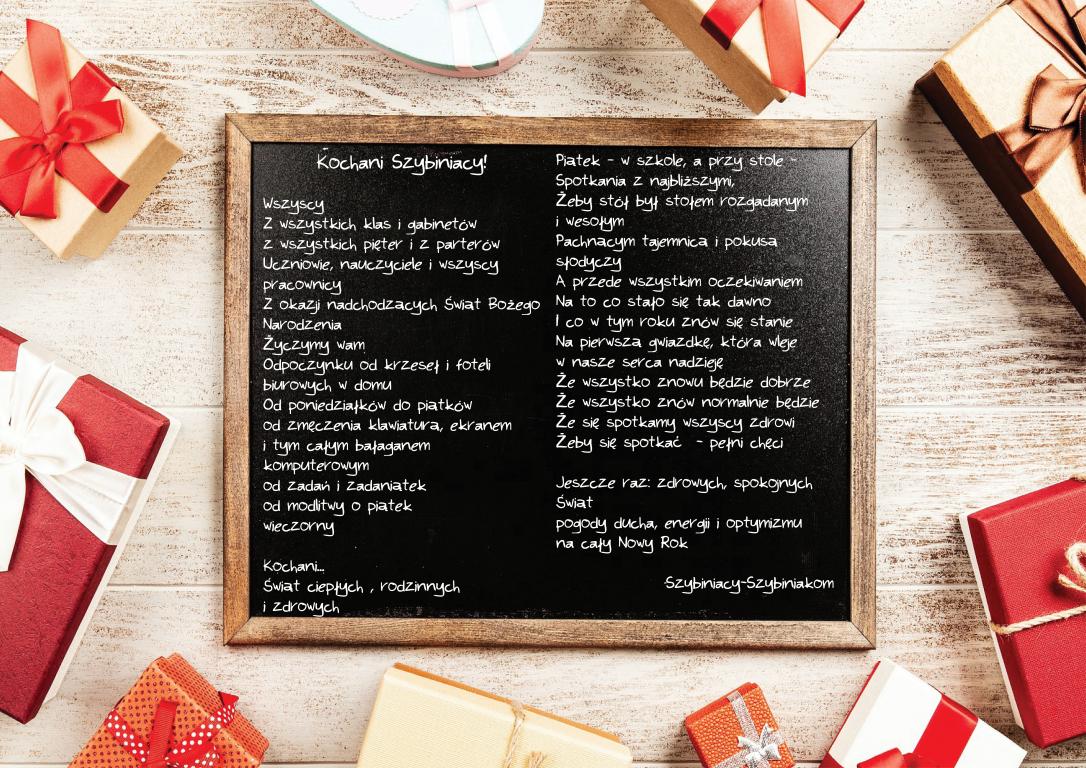 Kochani Szybiniacy!
Wszyscy
Z wszystkich klas i gabinetów
z wszystkich pięter i z parterów
Uczniowie, nauczyciele i wszyscy
pracownicy
Z okazji nadchodzacych Świat Bożego
Narodzenia
Życzymy wam
Odpoczynku od krzeseł i foteli
biurowych w domu
Od poniedziałków do piatków
od zmęczenia klawiatura, ekranem
i tym całym bałaganem
komputerowym
od zadań i zadaniatek
od modlitwy o piatek
wieczorny
Kochani...
Świat ciepłych , rodzinnych
i zdrowych
Piatek - w szkole, a przy stole -
Spotkania z najbliższymi,
Żeby stół był stołem rozgadanym
i wesołym
Pachnacym tajemnica i pokusa
słodyczy
A przede wszystkim oczekiwaniem
Na to co stało się tak dawno
I co w tym roku znów się stanie
Na pierwsza gwiazdkę, która wleje
w nasze serca nadzieję
Że wszystko znowu będzie dobrze
Że wszystko znów normalnie będzie
Że się spotkamy wszyscy zdrowi
Żeby się spotkać - pełni chęci
Jeszcze raz: zdrowych, spokojnych
Świat
pogody ducha, energii i optymizmu
na cały Nowy Rok
Szybiniacy-Szybiniakom